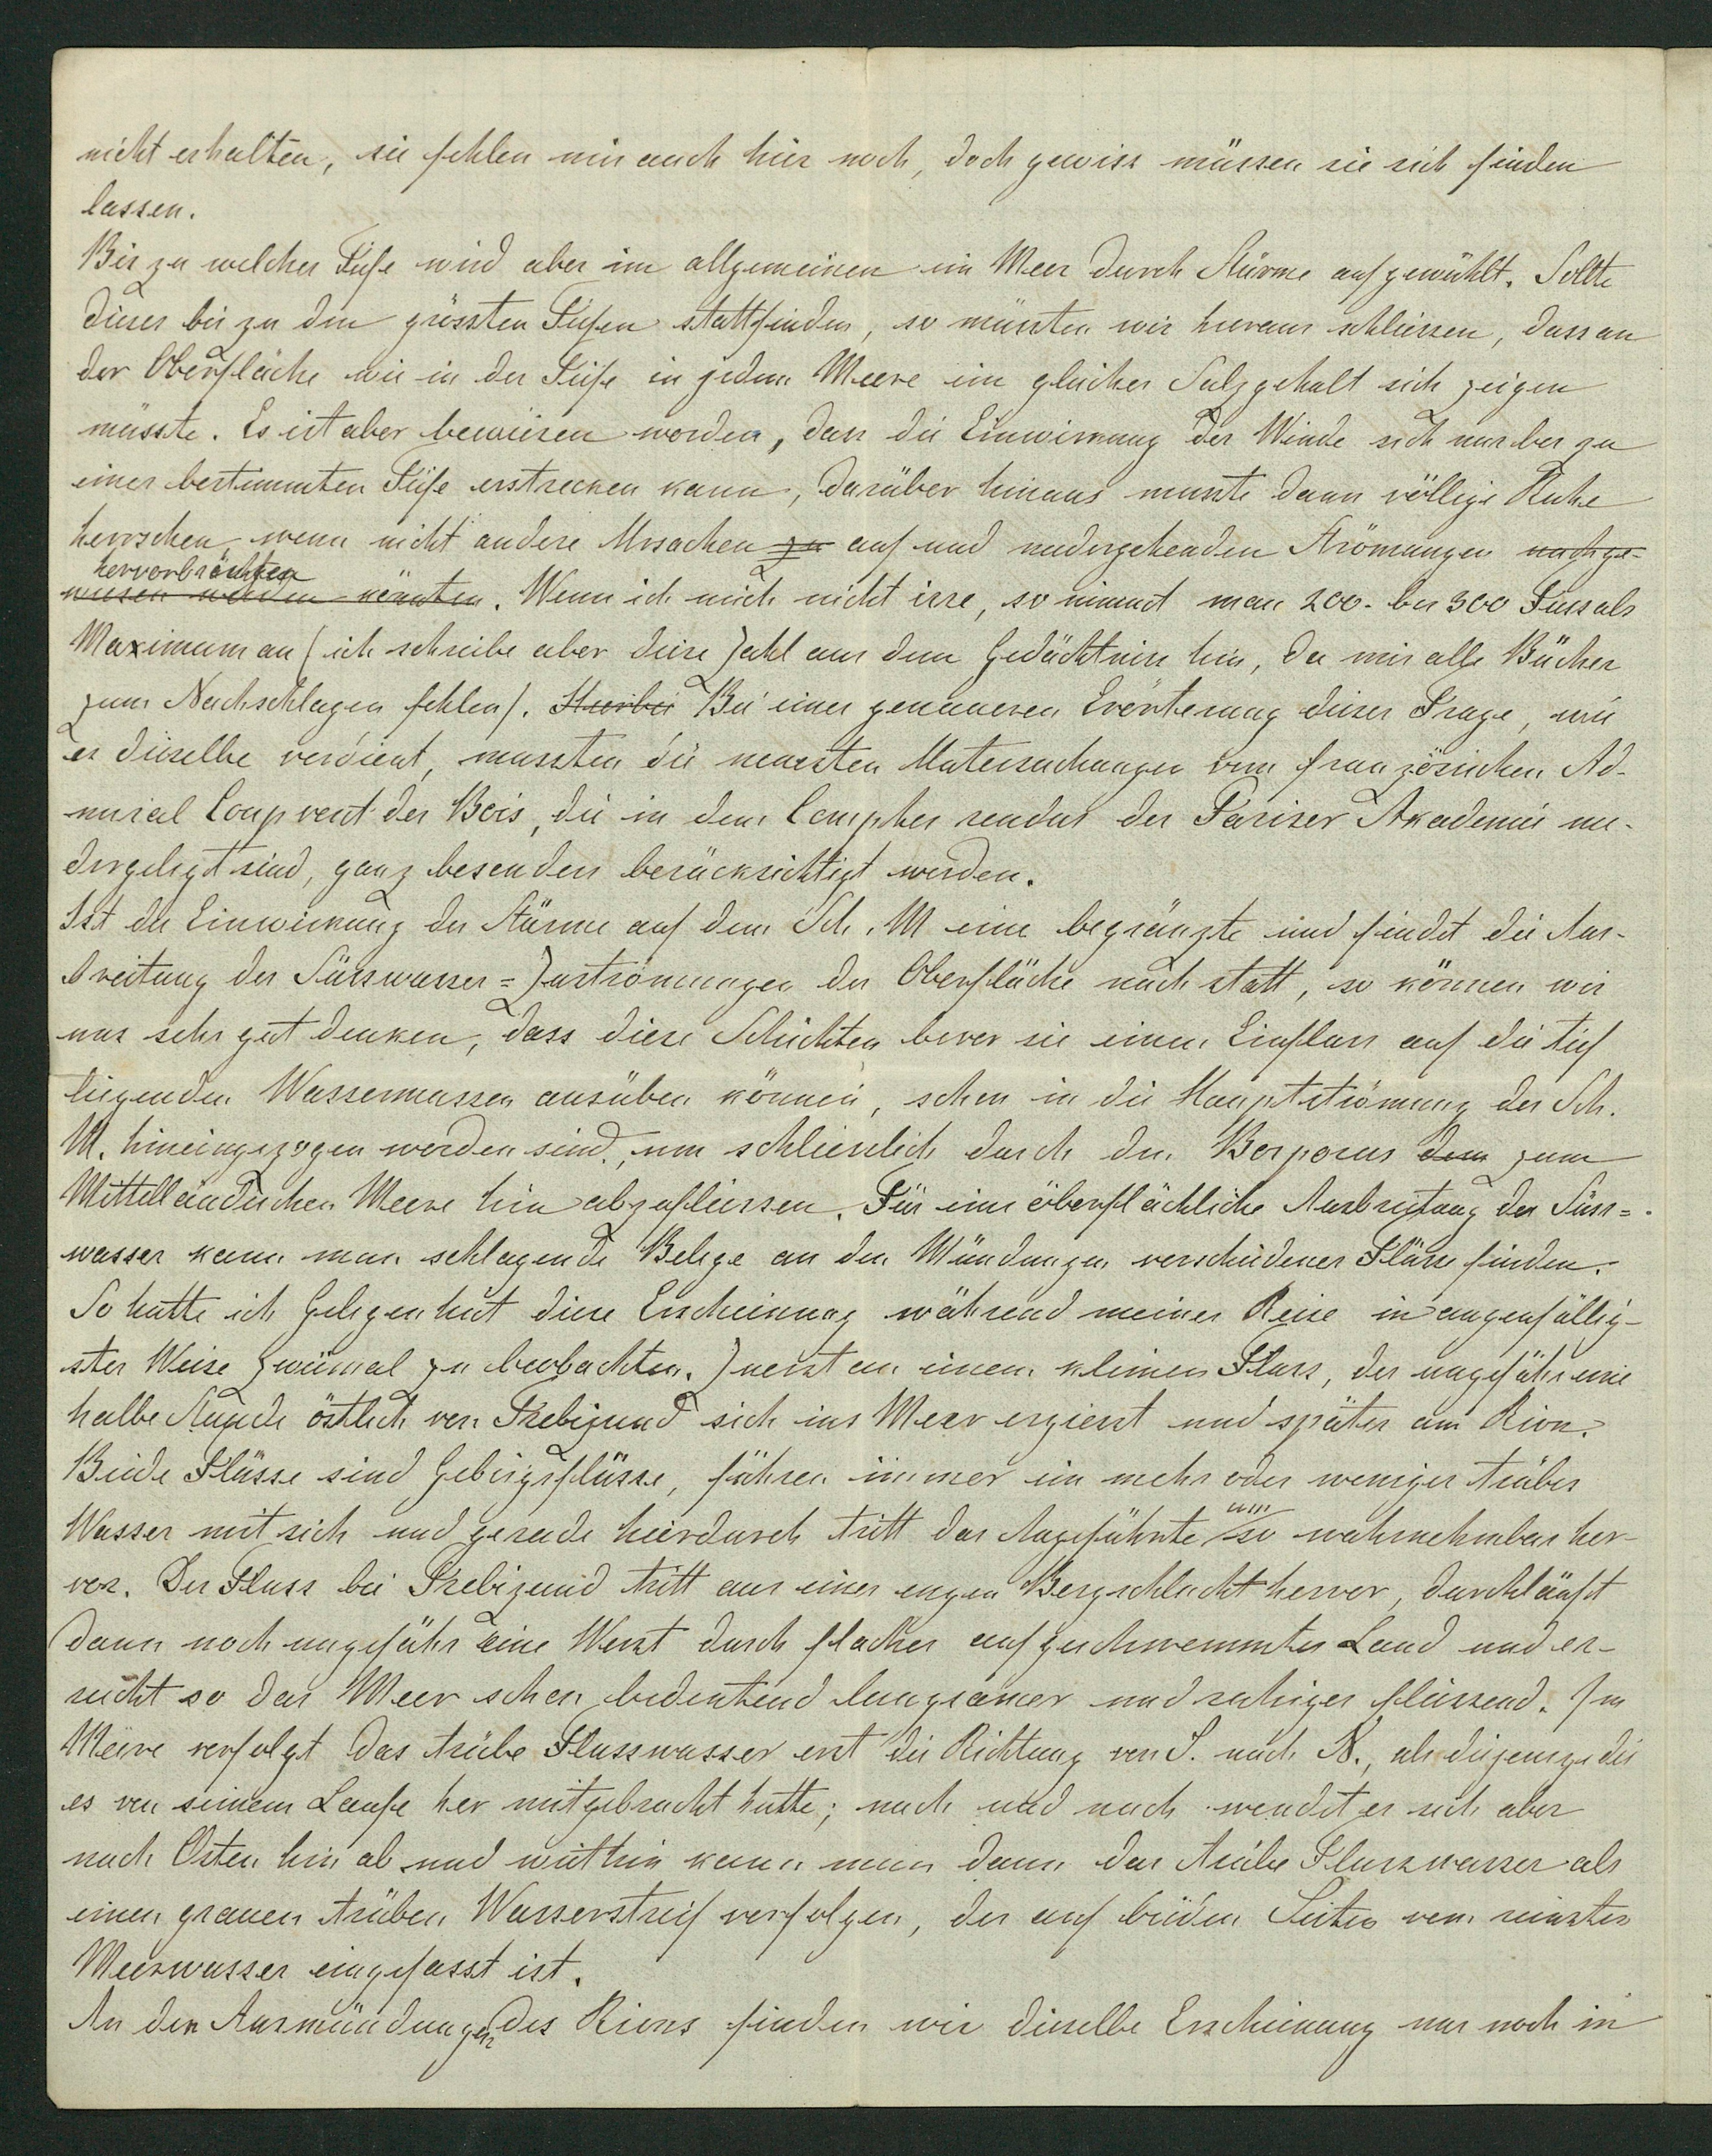 nicht erhalten, sie fehlen mir auch hier noch, doch gewiss müssen sie sich finden
lassen.
Bis zu welcher Tiefe wird aber im allgemeinen ein Meer durch Stürme aufgewühlt. Sollte
dieses bis zu den grössten Tiefen stattfinden, so müssten wir hieraus schliessen, dass an
der Oberfläche wie in der Tiefe in jedem Meere ein gleicher Salzgehalt sich zeigen
müsste. Es ist aber bewiesen worden, dass die Einwirkung der Winde sich nur bis zu
einer bestimmten Tiefe erstrecken kann, darüber hinaus musste dann völlige Ruhe
herrschen, wenn nicht andere Ursachen zu auf und niedergehenden Strömungen nachge-
hervorbrächten
wiesen werden könnten. Wenn ich mich nicht irre, so nimmt man 200- bis 300 Fuss als
Maximum an (ich schreibe aber diese Zahl aus dem Gedächtniss hin, da mir alle Bücher
zum Nachschlagen fehlen). Hierbei Bei einer genaueren Erörterung dieser Frage, wie
es dieselbe verdient, mussten die neuesten Untersuchungen vom französischen Ad-
miral Coupvent des Bois, die in den Comptes rendus der Pariser Akademie nie-
dergelegt sind, ganz besonders berücksichtigt werden.
Ist die Einwirkung der Stürme auf dem Sch. M eine begränzte und findet die Aus-
breitung der Süsswasser=Zuströmungen der Oberfläche nach statt, so können wir
uns sehr gut denken, dass diese Schichten bevor sie einen Einfluss auf die tief
liegenden Wassermassen ausüben können, schon in die Hauptströmung des Sch.
M. hineingezogen worden sind, um schliesslich durch den Bosporus dem zum
Mittelländischen Meere hin abzufliessen. Für eine oberflächliche Ausbreitung der Süss=
wasser kann man schlagende Belege an den Mündungen verschiedener Flüsse finden.
So hatte ich Gelegenheit diese Erscheinung während meiner Reise in augenfällig-
ster Weise zweimal zu beobachten. Zuerst an einem kleinen Fluss, der ungefähr eine
halbe Stunde östlich von Trebizund sich ins Meer ergiesst und später am Rion.
Beide Flüsse sind Gebirgsflüsse, führen immer ein mehr oder weniger trübes
Wasser mit sich und gerade hierdurch tritt das Angeführte um so wahrnehmbar her-
vor. Der Fluss bei Trebizund tritt aus einer engen Bergschlucht hervor, durchläuft
dann noch ungefähr eine Werst durch flaches aufgeschwemmtes Land und er-
reicht so das Meer schon bedeutend langsamer und ruhiger fliessend. Im
Meere verfolgt das trübe Flusswasser erst die Richtung von S. nach N., als diejenige die
es von seinem Laufe her mitgebracht hatte; nach und nach wendet es sich aber
nach Osten hin ab und weithin kann man dann das trübe Flusswasser als
einen grauen trüben Wasserstreif verfolgen, der auf beiden Seiten vom reinsten
Meerwasser eingefasst ist.
An den Ausmündungen des Rions finden wir dieselbe Erscheinung nur noch in